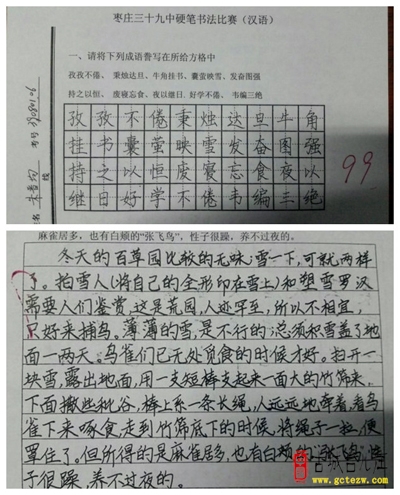 枣庄三十九中硬笔书法比赛（汉语）
一、请将下列成语誊写在所给方格中
孜孜不倦、秉烛达旦、牛角挂书、囊萤映雪、发奋图强
持之以恒、废寝忘食、夜以继日、好学不倦、韦编三绝
孜孜不倦秉烛达旦牛角
挂书囊萤映雪发奋图强
持之以恒废寝忘食夜以
继日好学不倦韦编三绝
99
考号 39080106
名
线
麻雀居多，也有白颊的“张飞鸟”，性子很躁，养不过夜的。
冬天的百草园比较的无味；雪一下，可就两样
了。拍雪人（将自己的全形印在雪上）和塑雪罗汉
需要人们鉴赏，这是荒园，人迹罕至，所以不相宜，
只好来捕鸟。薄薄的雪，是不行的；总须积雪盖了地
面一两天。鸟雀们已无处觅食的时候才好。扫开一
块雪，露出地面，用一支短棒支起来一面大的竹筛来，
下面撒些秕谷，棒上系一条长绳，人远远地牵着，看鸟
雀下来啄食，走到竹筛底下的时候，将绳子一拉，便
罩住了。但所得的是麻雀居多，也有白颊的“张飞鸟”，性
子很躁，养不过夜的。
www.gctezw.com